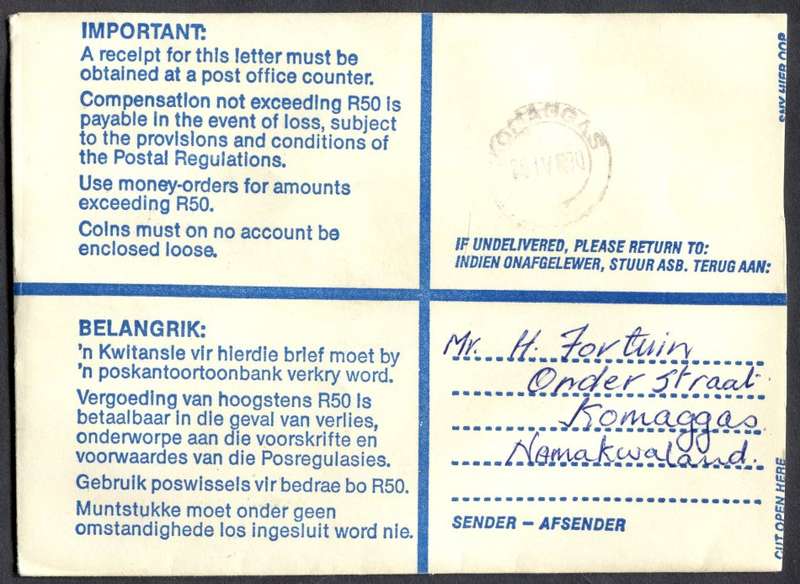 IMPORTANT:
A receipt for this letter must be
obtained at a post office counter.
Compensation not exceeding R50 is
payable in the event of loss, subject
to the provisions and conditions of
the Postal Regulations.
Use money-orders for amounts
exceeding R50.
Coins must on no account be
enclosed loose.
SNY HIER OOP
KOMAGGAS
IF UNDELIVERED, PLEASE RETURN TO:
INDIEN ONAFGELEWER, STUUR ASB. TERUG AAN:
BELANGRIK:
'n Kwitansie vir hierdie brief moet by
'n poskantoortoonbank verkry word.
Vergoeding van hoogstens R50 is
betaalbaar in die geval van verlies,
onderworpe aan die voorskrifte en
voorwaardes van die Posregulasies.
Gebruik poswissels vir bedrae bo R50.
Muntstukke moet onder geen
omstandighede los ingesluit word nie.
Mr. H. Fortuin
Onder straat
Komaggas
Namakwaland.
SENDER – AFSENDER
CUT OPEN HERE